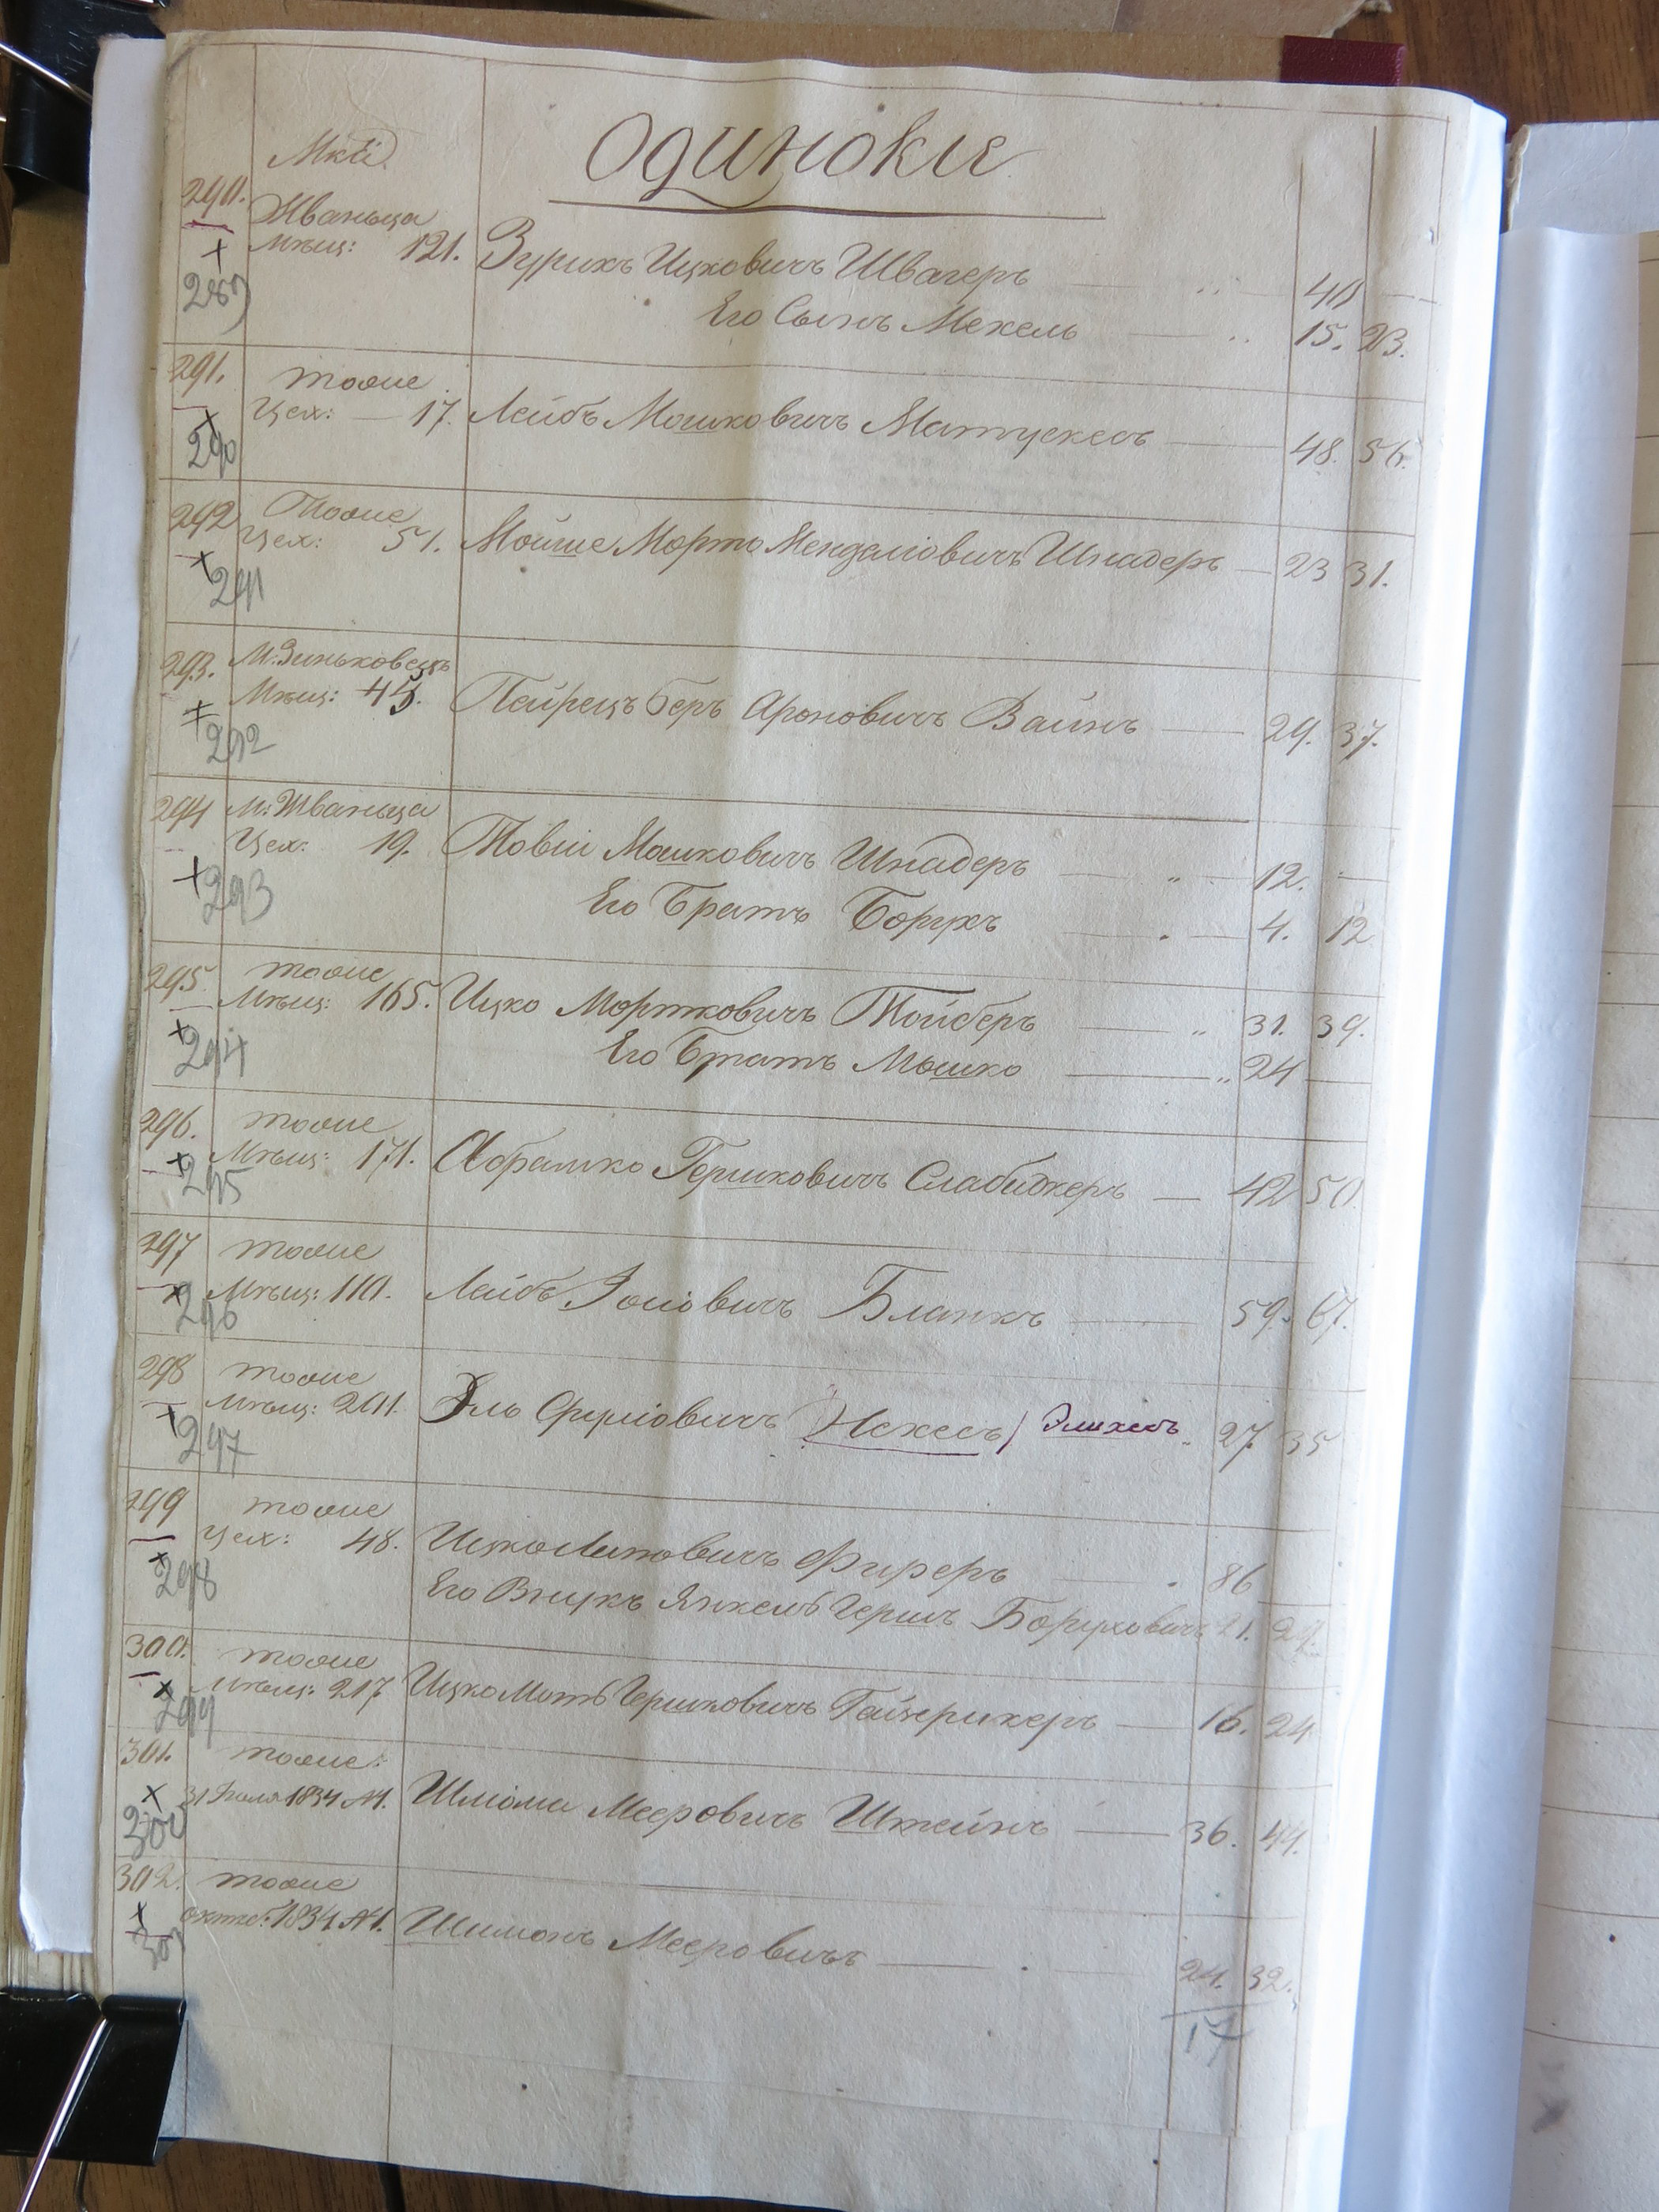 Одинокіе
290.
Жванца
Мѣщ: 121. Зурихъ Ицковичъ Швагеръ 40
289
Его Сынъ Мехель 15. 23.
291. тоже
Цех: 17. Лейбъ Мошковичъ 48. 56.
290
292 Тоже
Цех: 51. Мойше Мортко Менделіовичъ Шнадеръ 23 31.
291
293. М: Зиньковецъ
Мѣщ: 45. Пейрецъ Беръ Ароновичъ Вайнъ 29. 37.
292
294 М: Жванца
Цех: 19. Товіи Мошковичъ Шнадеръ 12.
293
Его Братъ Борухъ 4. 12
295 тоже
Мѣщ: 165. Ицко Мортковичъ Тойберъ 31. 39.
294
Его Братъ Мошко 24
296. тоже
Мѣщ: 171. Абрамко Гершковичъ Слабиджеръ 42 50.
295
297 тоже
Мѣщ: 110. Лейбъ Іосіовичъ Бланкъ 59. 67.
296
298 тоже
Мѣщ: 201. Эль Сруліовичъ Нехесъ / Элихесъ 27. 35
297
299 тоже
Цех: 48. Ицко Липовичъ Фиреръ 86
298
Его Внукъ Янкель Гершъ Боруховичъ 21. 29.
300. тоже
Мѣщ: 217 Ицко Мотъ Гершковичъ 16. 24
299
301. тоже:
31 Іюля 1834 №1. Шліома Мееровичъ Штейнъ 36. 44.
300
302. тоже
октяб: 1834 №1. Шимонъ Мееровичъ 24. 32.
301
17